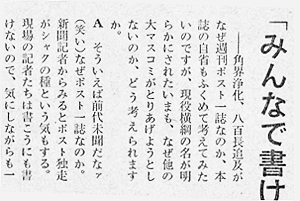 「みんなで書け
――角界浄化、八百長追及が
なぜ週刊ポスト一誌なのか、本
誌の自省もふくめて考えてみた
いのですが、現役横綱の名が明
らかにされたいまも、なぜ他の
大マスコミがとりあげようとし
ないのか、どう考えられます
か。
A　そういえば前代未聞だなァ
(笑い)なぜポスト一誌なのか。
新聞記者からみるとポスト独走
がシャクの種という気もする。
現場の記者たちは書こうにも書
けないので、気にしながらも一